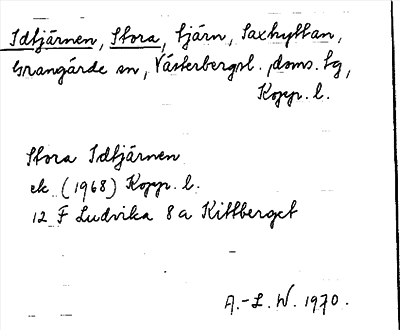 Idtjärnen, Stora, tjärn, Saxhyttan,
Grangärde sn, Västerbergsl. doms. tg,
Kopp. l.
Stora Idtjärnen
ek. (1968) Kopp. l.
12 F Ludvika 8a Kittberget
A.-L. W. 1970.